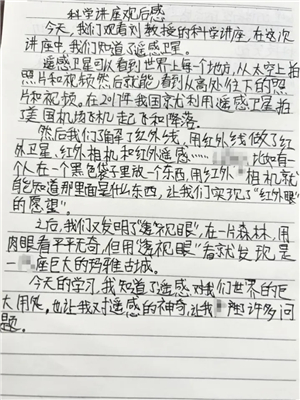 科学讲座观后感
今天，我们观看刘教授的科学讲座，在这次
讲座中，我们知道了遥感卫星。
遥感卫星可以看到世界上每个地方，从太空上拍
照片和视频然后就能看到从高处往下的照
片和视频。在2011年我国京尤利用遥感卫星拍
了美国机场飞机起飞和降落。
然后我们了解了红外线，用红外线做了红
外卫星、红外相机和红外遥感……比如有一
个人在一个黑色袋子里放一个东西，用红外相机就
能知道那里面是什么东西，让我们实现了“红外眼”
的愿望”。
之后，我们又发明了“透视眼”，在一片森林，用
肉眼看平平无奇，但用“透视眼”看就发现是
一座巨大的玛雅古城。
今天的学习，我知道了遥感对我们世界的巨
大用处，也让我对遥感的神奇，让我许多问
题。